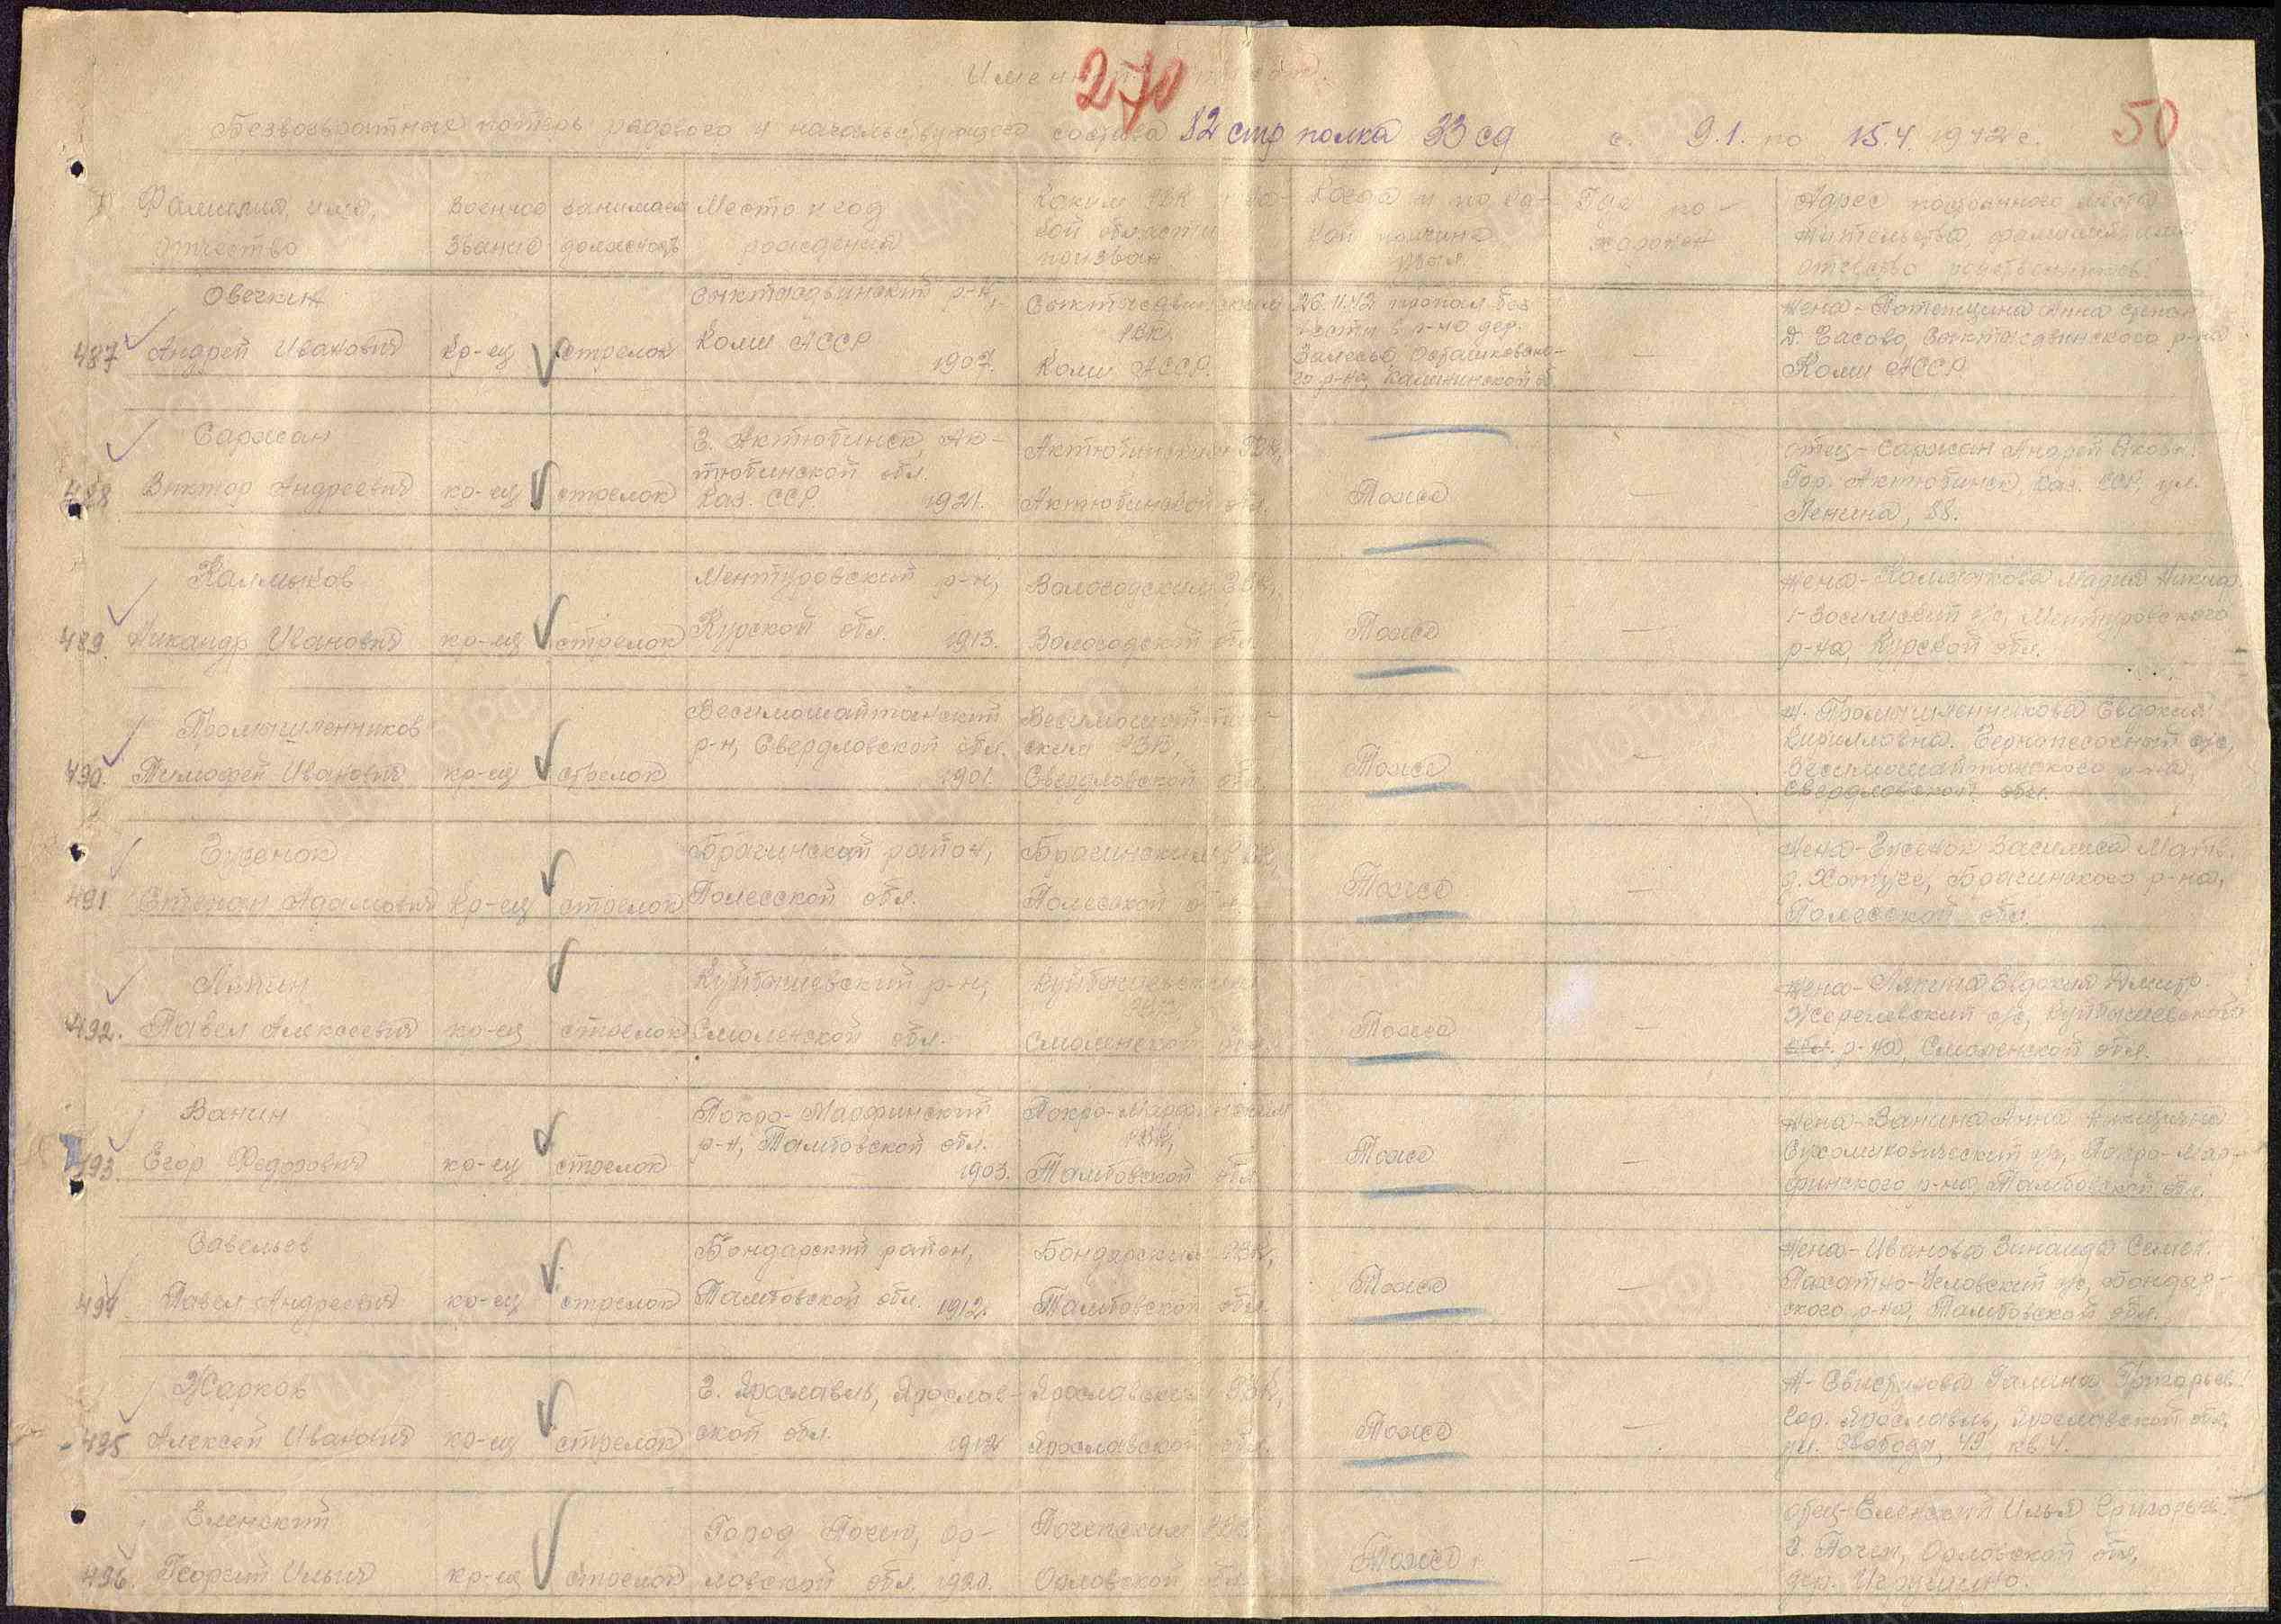 Именной список
270
50
Безвозвратных потерь рядового и начальствующего состава 82 стр полка 33 сд с. 9.1. по 15.4. 1942 г.
Фамилия, имя, отчество
Военное звание
занимаем должность
Место и год рождения
Каким РВК и какой области призван
Когда и по какой причине
Где похоронен
Адрес постоянного места жительства, фамилия, имя отчество родственников.
487 Овечкин
Андрей Иванович
кр-ец
стрелок
Сыктывдинский р-н,
Коми АССР
1907.
Сыктывдинским
РВК,
Коми АССР.
пропал без
вести в р-не дер.
Залесье Осташковско-
го р-на, Калининской о.
—
Жена - Анна
Сыктывдинского р-на
Коми АССР
488 Саржан
Виктор Андреевич
кр-ец
стрелок
г. Актюбинск, Ак-
тюбинской обл.
Каз. ССР
1921.
Актюбинским РВК,
Актюбинской обл.
Тоже
—
отец - Саржан Андрей Яковл.
Гор. Актюбинск, Каз. ССР, ул.
Ленина, 88.
489. Калмыков
Никандр Иванович
кр-ец
стрелок
Ментуровский р-н,
Курской обл.
1913.
Вологодским РВК,
Вологодской обл.
Тоже
—
Жена - Калмыкова Мария Никиф.
с/с, Ментуровского
р-на, Курской обл.
490. Промышленников
Тимофей Иванович
кр-ец
стрелок
р-н, Свердловской обл.
1901.
ским РВК,
Свердловской обл.
Тоже
—
Ж. Промышленникова Евдокия
Кирилловна. с/с,
р-на,
Свердловской обл.
491 Гусенок
Степан Адамович
кр-ец
стрелок
Брагинский район,
Полесской обл.
Брагинским РВК,
Полесской обл.
Тоже
—
Жена - Гусенок Василиса Матв.
Брагинского р-на,
Полесской обл.
492. Ляпин
Павел Алексеевич
кр-ец
стрелок
Куйбышевский р-н,
Смоленской обл.
Куйбышевским
РВК,
Смоленской обл.
Тоже
—
Жена - Ляпина Евдокия Дмитр.
с/с, Куйбышевского
р-на, Смоленской обл.
493. Ванин
Егор Федорович
кр-ец
стрелок
Покро-Марфинский
р-н, Тамбовской обл.
1903.
Покро-Марфинским
РВК,
Тамбовской обл.
Тоже
—
Жена - Ванина Анна
с/с, Покро-Мар-
финского р-на, Тамбовской обл.
494 Савельев
Павел Андреевич
кр-ец
стрелок
Бондарский район,
Тамбовской обл. 1912.
Бондарским РВК,
Тамбовской обл.
Тоже
—
Жена - Иванова Зинаида Семен.
с/с, Бондар-
ского р-на, Тамбовской обл.
495 Жарков
Алексей Иванович
кр-ец
стрелок
г. Ярославль, Ярослав-
ской обл.
1912
Ярославским РВК,
Ярославской обл.
Тоже
—
Ж - Галина Григорьев.
Гор. Ярославль, Ярославской обл,
ул. Свобода, 49, кв 4.
496. Еленский
Георгий Ильич
кр-ец
стрелок
Город Почеп, Ор-
ловской обл. 1920.
Почепским РВК
Орловской обл.
Тоже
—
отец - Еленский Илья Григорьев.
г. Почеп, Орловской обл,